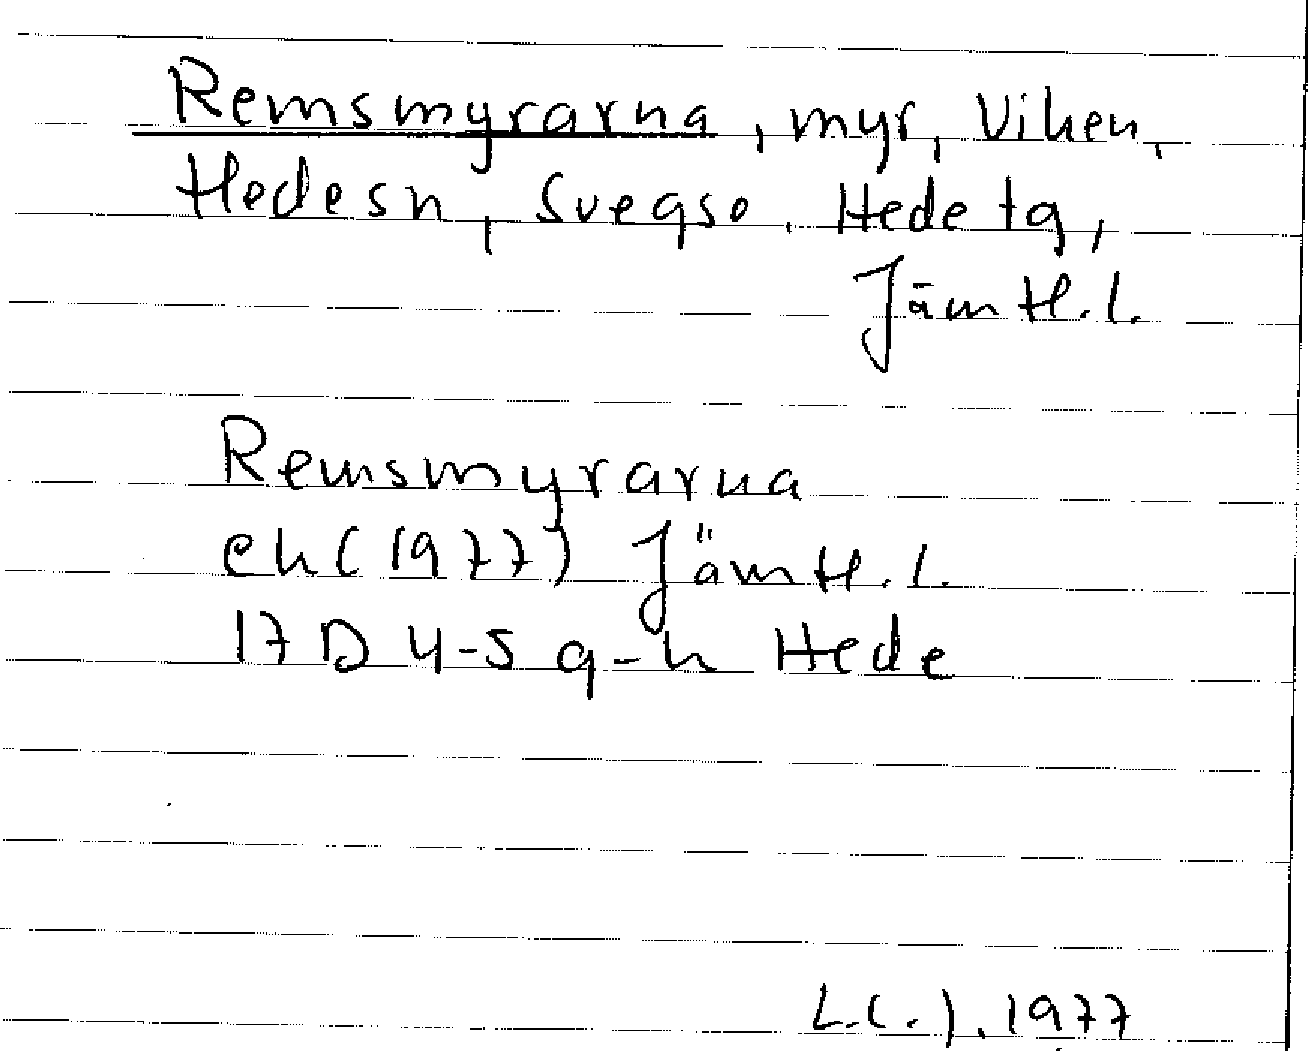 Remsmyrarna, myr, Viken,
Hedesn, Svegso. Hede tg,
Jämtl. l.
Remsmyrarna
ek (1977) Jämtl. l.
17 D 4-5 g-h Hede
1977